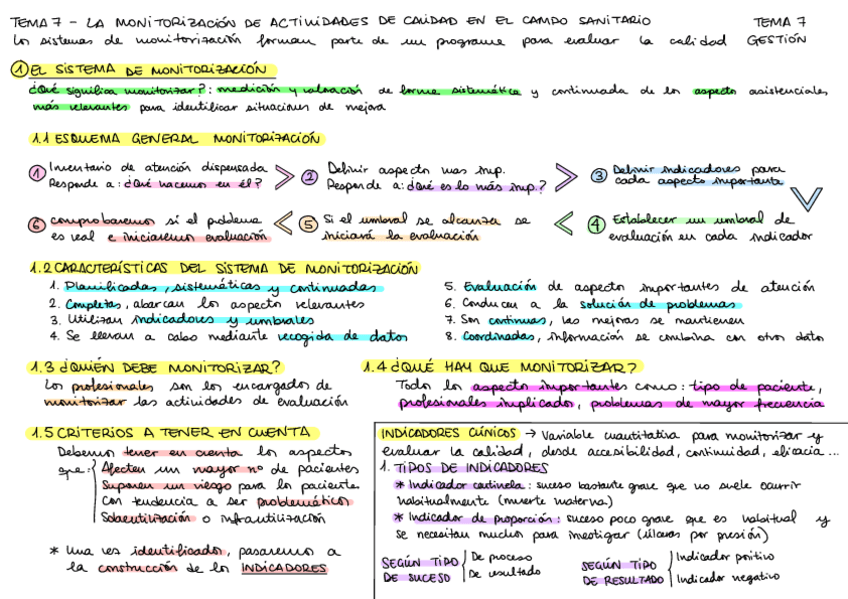 TEMA 7 - LA MONITORIZACIÓN DE ACTIVIDADES DE CALIDAD EN EL CAMPO SANITARIO
TEMA 7
GESTIÓN
Los sistemas de monitorización forman parte de un programa para evaluar la calidad
① EL SISTEMA DE MONITORIZACIÓN
¿Qué significa monitorizar?: medición y valoración de forma sistemática y continuada de los aspectos asistenciales
más relevantes para identificar situaciones de mejora
1.1 ESQUEMA GENERAL MONITORIZACIÓN
① Inventario de atención dispensada
Responde a: ¿Qué hacemos en él?
② Definir aspectos mas imp.
Responde a: ¿Qué es lo más imp.?
③ Definir indicadores para
cada aspecto importante
④ Establecer un umbral de
evaluación en cada indicador
⑤ Si el umbral se alcanza se
iniciará la evaluación
⑥ comprobaremos si el problema
es real e iniciaremos evaluación
1.2 CARACTERÍSTICAS DEL SISTEMA DE MONITORIZACIÓN
1. Planificadas, sistemáticas y continuadas
2. Completas, abarcan los aspectos relevantes
3. Utilizan indicadores y umbrales
4. Se llevan a cabo mediante recogida de datos
5. Evaluación de aspectos importantes de atención
6. Conducen a la solución de problemas
7. Son continuas, las mejoras se mantienen
8. Coordinadas, información se combina con otros datos
1.3 ¿QUIÉN DEBE MONITORIZAR?
Los profesionales son los encargados de
monitorizar las actividades de evaluación
1.4 ¿QUÉ HAY QUE MONITORIZAR?
Todos los aspectos importantes como: tipo de paciente,
profesionales implicados, problemas de mayor frecuencia
1.5 CRITERIOS A TENER EN CUENTA
Debemos tener en cuenta los aspectos
que: Afecten un mayor nº de pacientes
Suponen un riesgo para los pacientes
Con tendencia a ser problemáticos
Sobreutilización o infrautilización
* Una vez identificados, pasaremos a
la construcción de los INDICADORES
INDICADORES CLÍNICOS → Variable cuantitativa para monitorizar y
evaluar la calidad, desde accesibilidad, continuidad, eficacia ...
1. TIPOS DE INDICADORES
* Indicador centinela: suceso bastante grave que no suele ocurrir
habitualmente (muerte materna)
* Indicador de proporción: suceso poco grave que es habitual y
se necesitan muchos para investigar (úlceras por presión)
SEGÚN TIPO
DE SUCESO
De proceso
De resultado
SEGÚN TIPO
DE RESULTADO
Indicador positivo
Indicador negativo